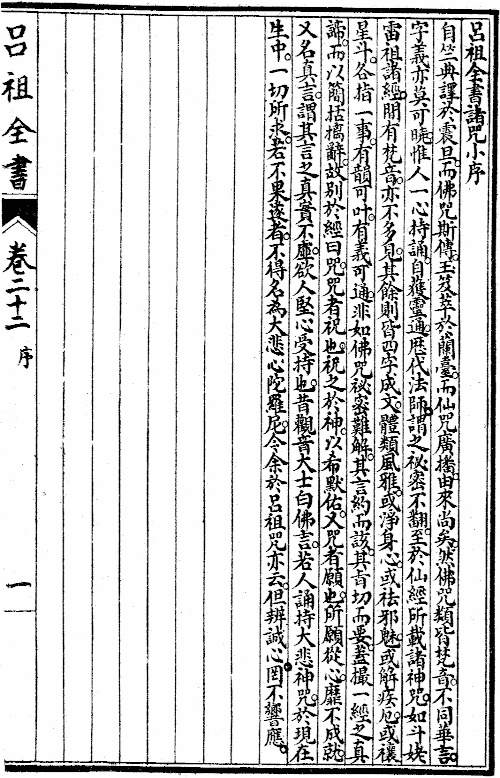 呂祖全書諸咒小序
自竺典譯於震旦。而佛咒斯傳。玉笈萃於蘭臺。而仙咒廣播。由來尚矣。然佛咒類皆梵音。不同華言。
字義亦莫可曉。惟人一心持誦。自獲靈通。歷代法師。謂之祕密不翻。至於仙經所載諸神咒。如斗姥
雷祖諸經。間有梵音。亦不多見。其餘則皆四字成文。體類風雅。或淨身心。或祛邪魅。或解疾厄。或禳
星斗。各指一事。有韻可叶。有義可通。非如佛咒祕密難解。其言約而該。其旨切而要。蓋撮一經之真
諦。而以簡括摛辭。故別於經曰咒。咒者祝也。祝之於神。以希默佑。又咒者願也。所願從心。靡不成就。
又名真言。謂其言之真實不虛。欲人堅心受持也。昔觀音大士白佛言。若人誦持大悲神咒。於現在
生中。一切所求。若不果遂者。不得名為大悲心陀羅尼。今余於呂祖咒亦云。但辨誠心。罔不響應。
呂祖全書
卷二十二
序
一